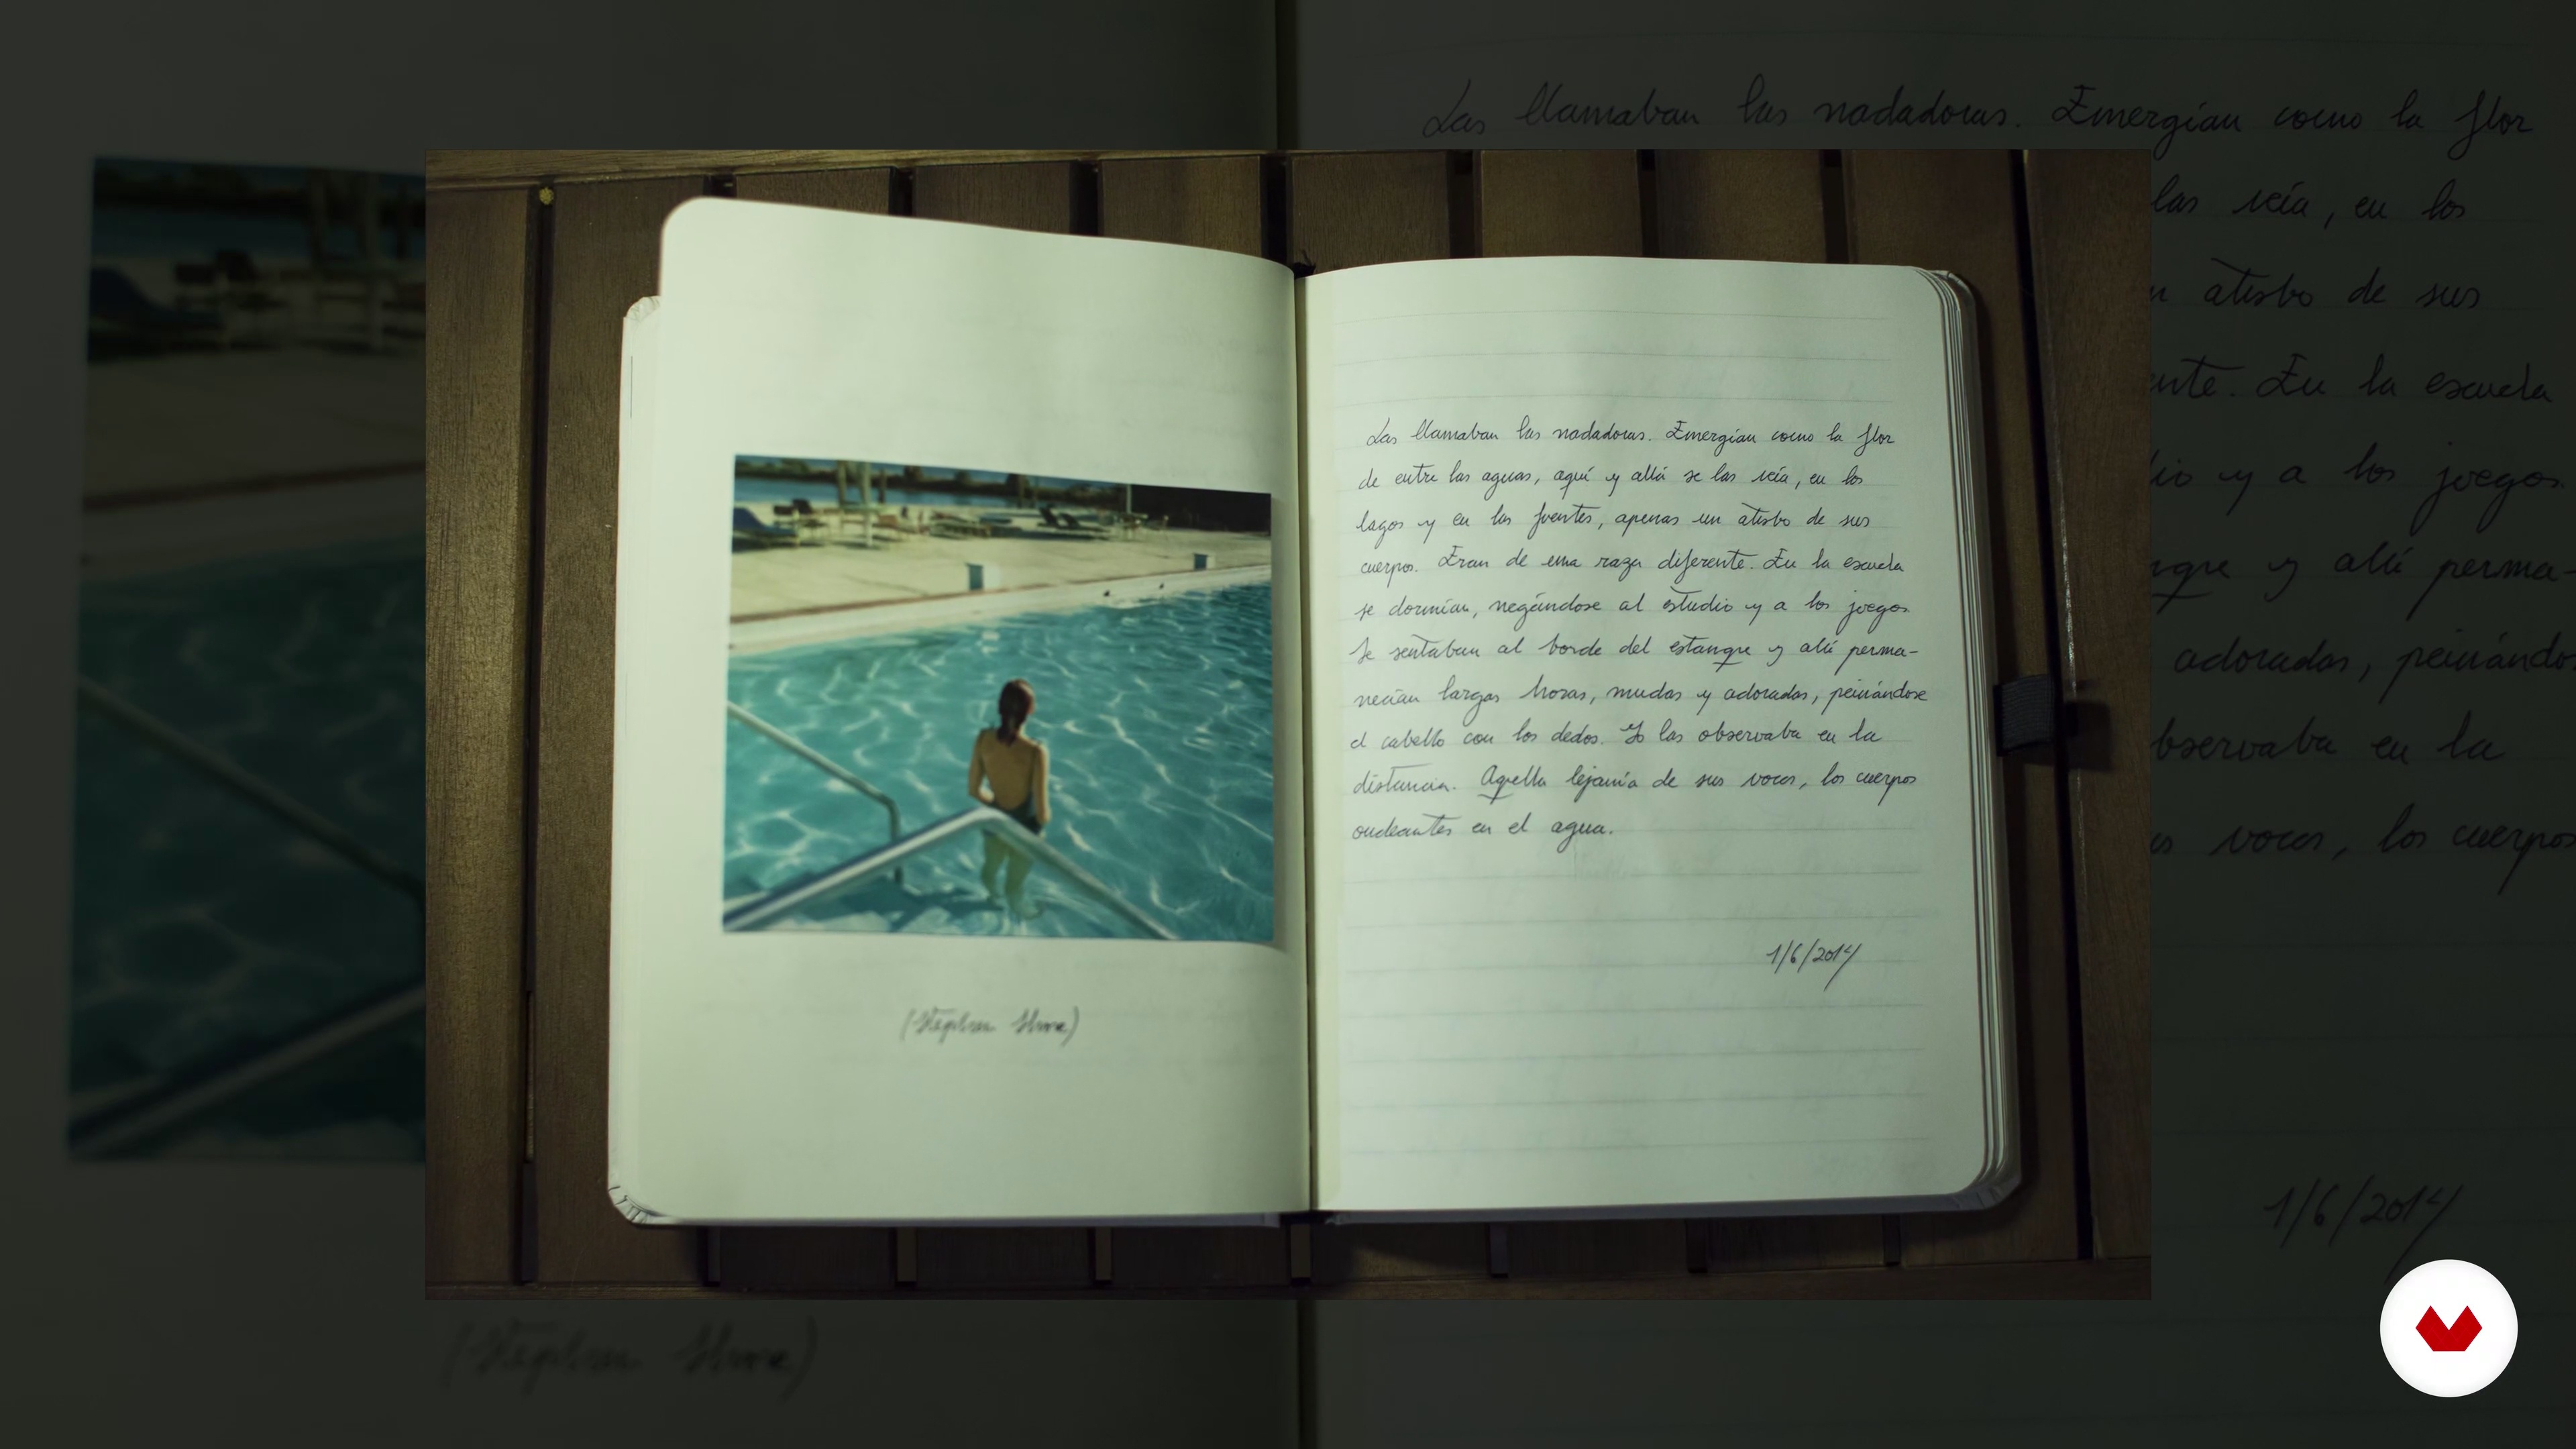 (Stephen Shore)
Las llamaban las nadadoras. Emergían como la flor
de entre las aguas, aquí y allá se las veía, en los
lagos y en las fuentes, apenas un atisbo de sus
cuerpos. Eran de una raza diferente. En la escuela
se dormían, negándose al estudio y a los juegos.
Se sentaban al borde del estanque y allí perma-
necían largas horas, mudas y adoradas, peinándose
el cabello con los dedos. Yo las observaba en la
distancia. Aquella lejanía de sus voces, los cuerpos
ondeantes en el agua.
1/6/2014